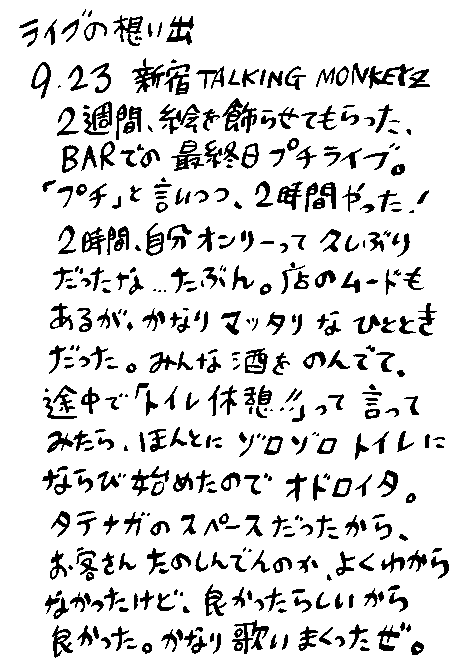 ライブの想い出
9.23 新宿 TALKING MONKEYZ
2週間、絵を飾らせてもらった、
BARでの 最終日プチライブ。
「プチ」と言いつつ、2時間やった!
2時間、自分オンリーって久しぶり
だったな…たぶん。店のムードも
あるが、かなりマッタリなひととき
だった。みんな酒をのんでて、
途中で「トイレ休憩!!」って言って
みたら、ほんとにゾロゾロトイレに
ならび始めたのでオドロイタ。
タテナガのスペースだったから、
お客さんたのしんでんのか、よくわから
なかったけど、良かったらしいから
良かった。かなり歌いまくったぜ。